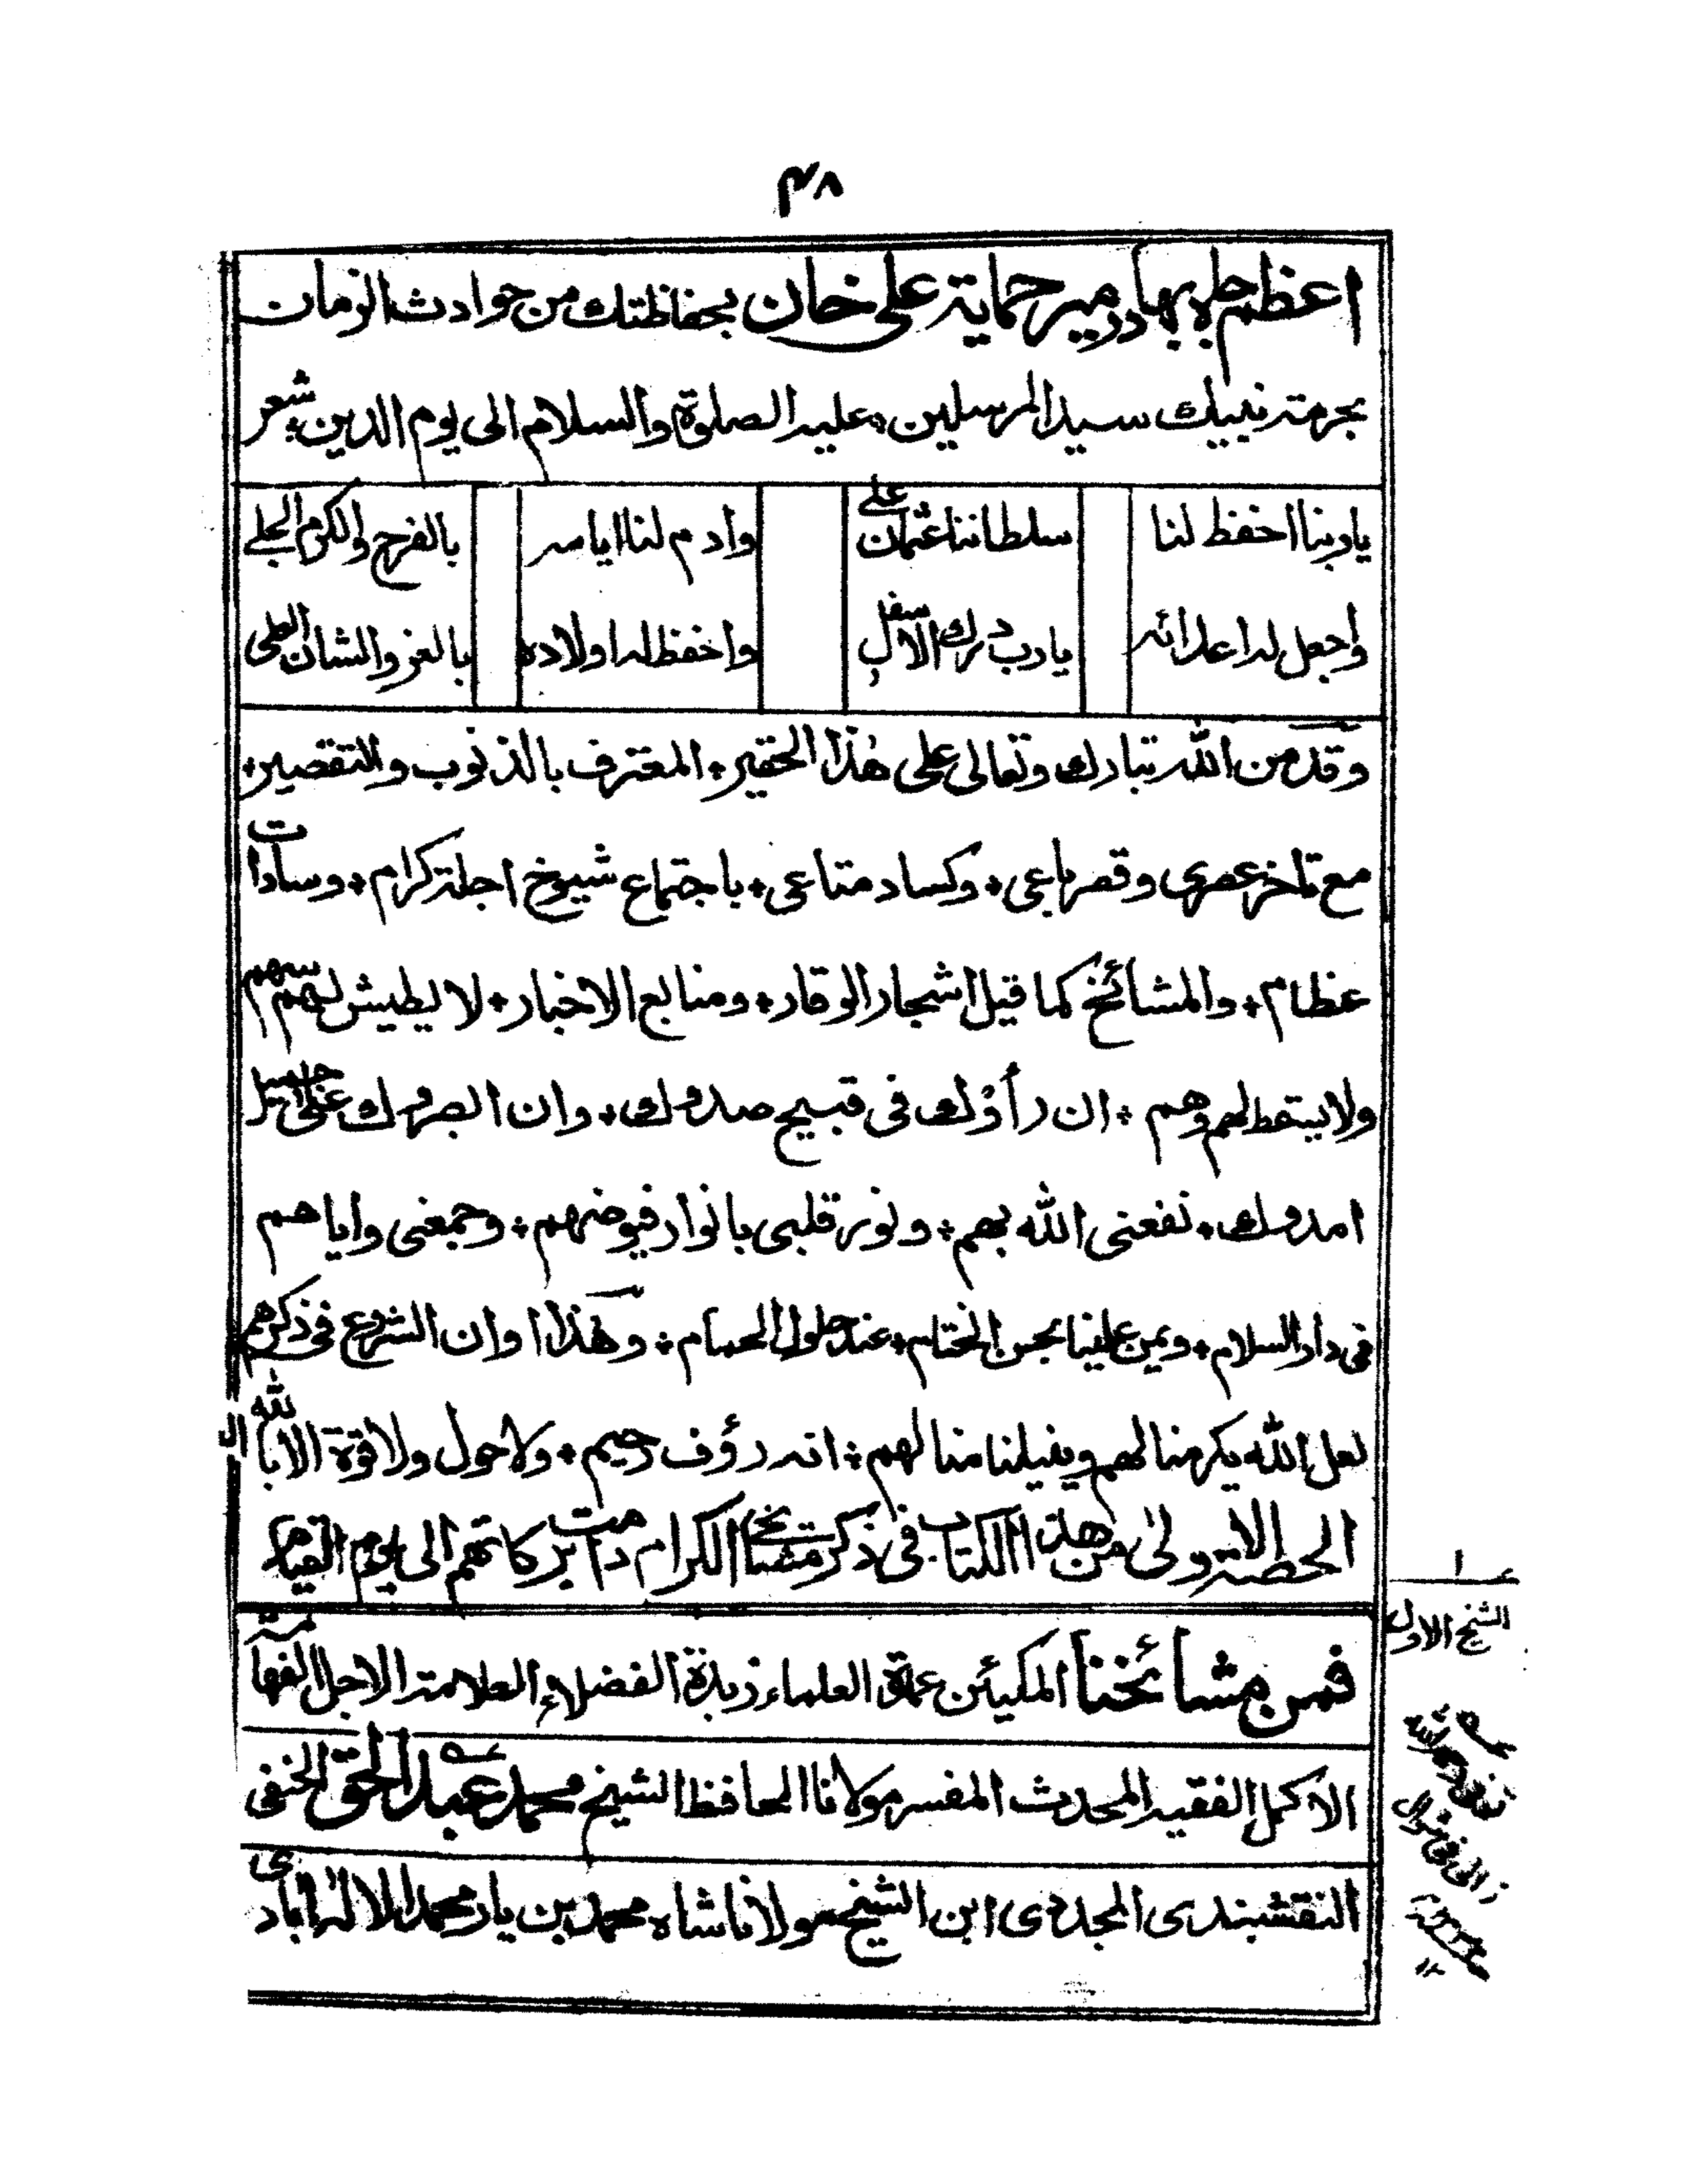 ٤٨
اعظم جاه بهادر مير حماية على خان بحفاظتك من حوادث الزمان
بحرمة نبيك سيد المرسلين، عليه الصلوة والسلام الى يوم الدين، شعر
ياربنا احفظ لنا سلطاننا عثمان على وادم لنا ايامه بالفرح والكرم الجلي
واجعل له اعدائه يا رب درك الاسفل واحفظ له اولاده بالعز والشان العلى
وقد من الله تبارك وتعالى على هذا الحقير ÷ المعترف بالذنوب والتقصير ÷
مع تاخر عصرى وقصر باعى ÷ وكساد متاعى ÷ باجتماع شيوخ اجلة كرام ÷ وسادات
عظام ÷ والمشائخ كما قيل اشجار الوقار ÷ ومنابع الاخبار ÷ لا يطيش لهم سهم
ولا يسقط لهم وهم ÷ ان رأوك فى قبيح صدوك ÷ وان ابصروك على جميل
امدوك ÷ نفعنى الله بهم ÷ ونور قلبى بانوار فيوضهم ÷ وجمعنى واياهم
فى دار السلام ÷ ويمن علينا بحسن الختام ÷ عند حلول الحمام ÷ وهذا اوان الشروع فى ذكرهم
لعل الله يكرمنا لهم وينيلنا منالهم ÷ انه رؤف رحيم ÷ ولا حول ولا قوة الا بالله
الحصة الاولى من هذا الكتاب فى ذكر مشائخنا الكرام دامت بركاتهم الى يوم القيام
فمن مشائخنا المكيين عمدة العلماء زبدة الفضلاء العلامة الاجل الفهامة
الاكمل الفقيه المحدث المفسر مولانا الحافظ الشيخ محمد عبد الحق الحنفى
النقشبندى المجددى ابن الشيخ مولانا شاه محمد بن يار محمد الاله ابادى
الشيخ الاول